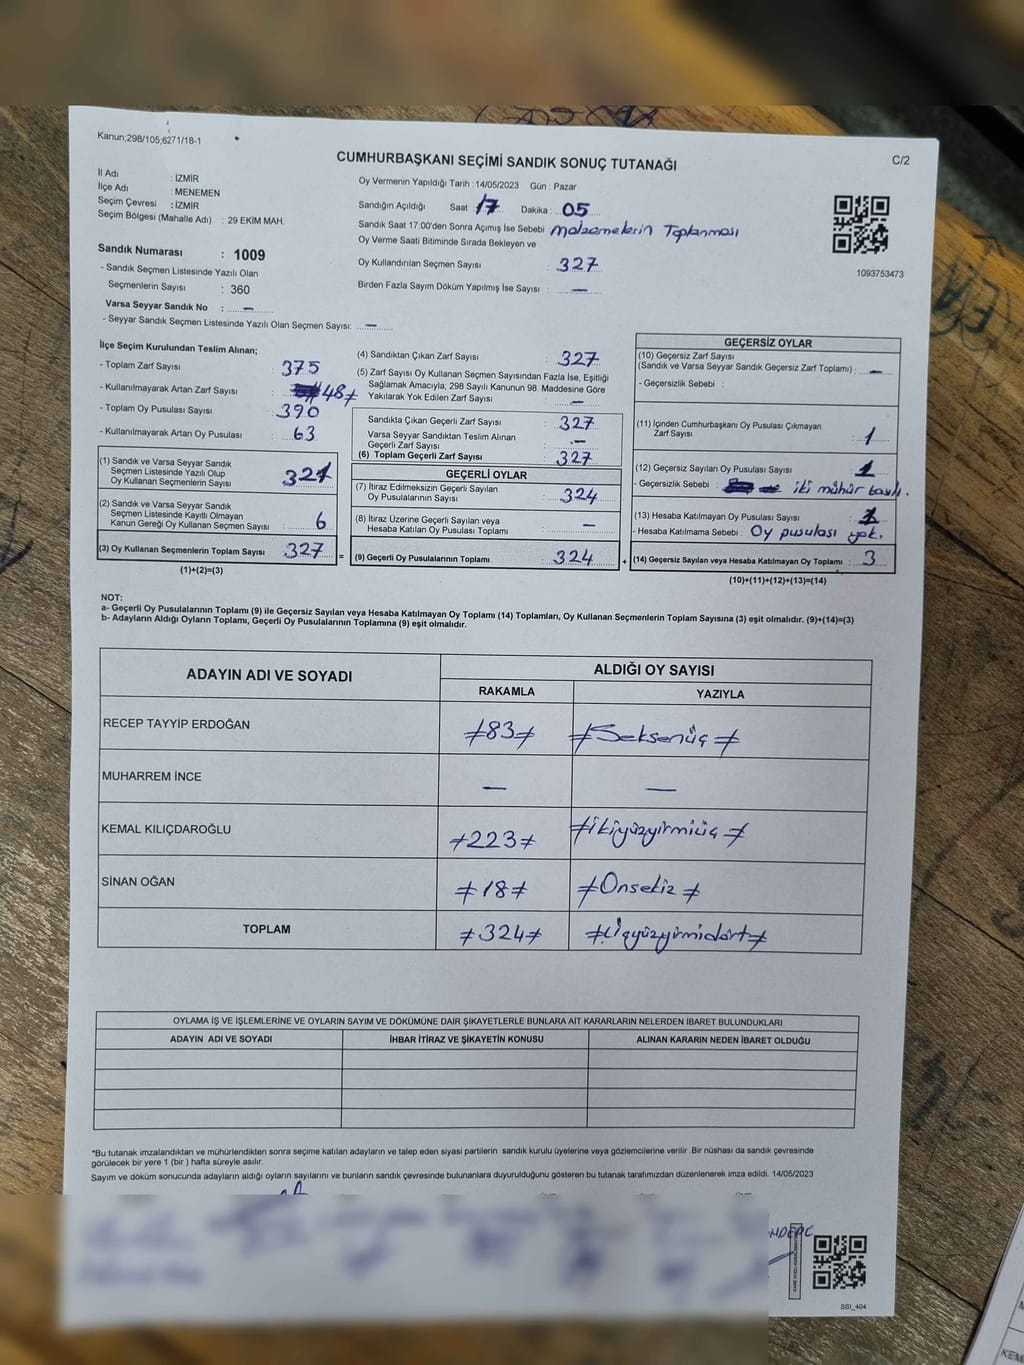 Kanun;298/105;6271/18-1
C/2
CUMHURBAŞKANI SEÇİMİ SANDIK SONUÇ TUTANAĞI
İl Adı : İZMİR
İlçe Adı : MENEMEN
Seçim Çevresi : İZMİR
Seçim Bölgesi (Mahalle Adı) : 29 EKİM MAH.
Oy Vermenin Yapıldığı Tarih : 14/05/2023 Gün : Pazar
Sandığın Açıldığı Saat : 17 Dakika : 05
Sandık Saat 17:00'den Sonra Açımış İse Sebebi : Malzemelerin Toplanması
Oy Verme Saati Bitiminde Sırada Bekleyen ve
Oy Kullandırılan Seçmen Sayısı : 327
Birden Fazla Sayım Döküm Yapılmış İse Sayısı : —
1093753473
Sandık Numarası : 1009
- Sandık Seçmen Listesinde Yazılı Olan
Seçmenlerin Sayısı : 360
Varsa Seyyar Sandık No : —
- Seyyar Sandık Seçmen Listesinde Yazılı Olan Seçmen Sayısı: —
İlçe Seçim Kurulundan Teslim Alınan;
- Toplam Zarf Sayısı : 375
- Kullanılmayarak Artan Zarf Sayısı : 48≠
- Toplam Oy Pusulası Sayısı : 390
- Kullanılmayarak Artan Oy Pusulası : 63
(1) Sandık ve Varsa Seyyar Sandık
Seçmen Listesinde Yazılı Olup
Oy Kullanan Seçmenlerin Sayısı : 321
(2) Sandık ve Varsa Seyyar Sandık
Seçmen Listesinde Kayıtlı Olmayan
Kanun Gereği Oy Kullanan Seçmen Sayısı : 6
(3) Oy Kullanan Seçmenlerin Toplam Sayısı : 327 =
(1)+(2)=(3)
(4) Sandıktan Çıkan Zarf Sayısı : 327
(5) Zarf Sayısı Oy Kullanan Seçmen Sayısından Fazla İse, Eşitliği
Sağlamak Amacıyla; 298 Sayılı Kanunun 98. Maddesine Göre
Yakılarak Yok Edilen Zarf Sayısı : —
Sandıkta Çıkan Geçerli Zarf Sayısı : 327
Varsa Seyyar Sandıktan Teslim Alınan
Geçerli Zarf Sayısı : —
(6) Toplam Geçerli Zarf Sayısı : 327
GEÇERLİ OYLAR
(7) İtiraz Edilmeksizin Geçerli Sayılan
Oy Pusulalarının Sayısı : 324
(8) İtiraz Üzerine Geçerli Sayılan veya
Hesaba Katılan Oy Pusulası Toplamı : —
(9) Geçerli Oy Pusulalarının Toplamı : 324 +
GEÇERSİZ OYLAR
(10) Geçersiz Zarf Sayısı
(Sandık ve Varsa Seyyar Sandık Geçersiz Zarf Toplamı) : —
- Geçersizlik Sebebi :
(11) İçinden Cumhurbaşkanı Oy Pusulası Çıkmayan
Zarf Sayısı : 1
(12) Geçersiz Sayılan Oy Pusulası Sayısı : 1
- Geçersizlik Sebebi : iki mühür basılı.
(13) Hesaba Katılmayan Oy Pusulası Sayısı : 1
- Hesaba Katılmama Sebebi : Oy pusulası yok.
(14) Geçersiz Sayılan veya Hesaba Katılmayan Oy Toplamı : 3
(10)+(11)+(12)+(13)=(14)
NOT:
a- Geçerli Oy Pusulalarının Toplamı (9) ile Geçersiz Sayılan veya Hesaba Katılmayan Oy Toplamı (14) Toplamları, Oy Kullanan Seçmenlerin Toplam Sayısına (3) eşit olmalıdır. (9)+(14)=(3)
b- Adayların Aldığı Oyların Toplamı, Geçerli Oy Pusulalarının Toplamına (9) eşit olmalıdır.
ADAYIN ADI VE SOYADI
ALDIĞI OY SAYISI
RAKAMLA YAZIYLA
RECEP TAYYİP ERDOĞAN ≠83≠ ≠Seksenüç≠
MUHARREM İNCE — —
KEMAL KILIÇDAROĞLU ≠223≠ ≠ikiyüzyirmiüç≠
SİNAN OĞAN ≠18≠ ≠Onsekiz≠
TOPLAM ≠324≠ ≠Üçyüzyirmidört≠
OYLAMA İŞ VE İŞLEMLERİNE VE OYLARIN SAYIM VE DÖKÜMÜNE DAİR ŞİKAYETLERLE BUNLARA AİT KARARLARIN NELERDEN İBARET BULUNDUKLARI
ADAYIN ADI VE SOYADI İHBAR İTİRAZ VE ŞİKAYETİN KONUSU ALINAN KARARIN NEDEN İBARET OLDUĞU
*Bu tutanak imzalandıktan ve mühürlendikten sonra seçime katılan adayların ve talep eden siyasi partilerin sandık kurulu üyelerine veya gözlemcilerine verilir .Bir nüshası da sandık çevresinde
görülecek bir yere 1 (bir ) hafta süreyle asılır.
Sayım ve döküm sonucunda adayların aldığı oyların sayılarını ve bunların sandık çevresinde bulunanlara duyurulduğunu gösteren bu tutanak tarafımızdan düzenlenerek imza edildi. 14/05/2023
SSI_404